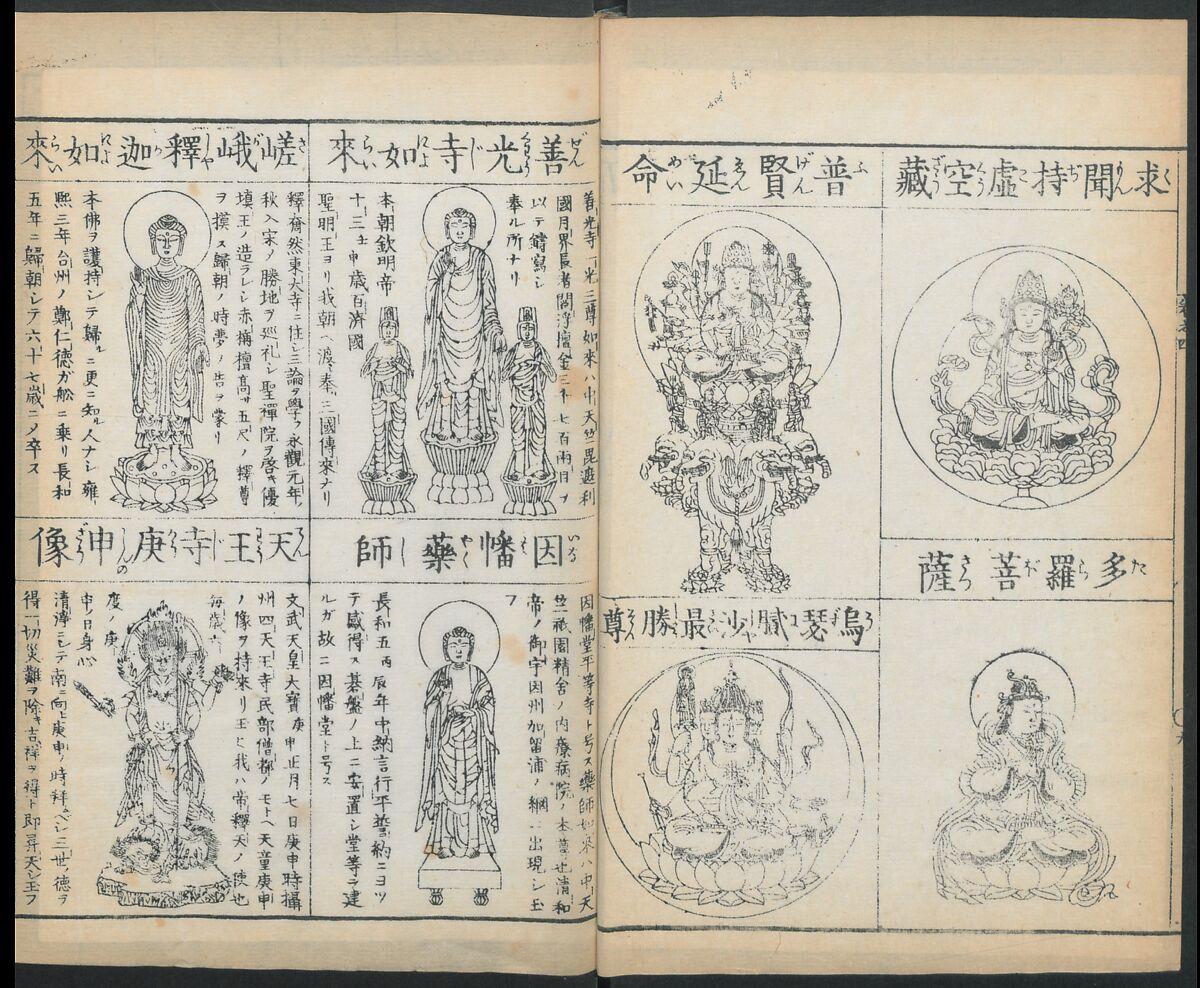 求聞持虛空藏
普賢延命
多羅菩薩
たらぼさつ
烏瑟膩沙最勝尊
善光寺如來
ぜんくわうじによらい
善光寺一光三尊如來ハ中天竺毘遮利
國月界長者閻浮檀金三千七百兩目ヲ
以テ鑄寫シ
奉ル所ナリ
本朝欽明帝
十三壬申歳百濟國
聖明王ヨリ我朝ヘ渡奉三國傳來ナリ
嵯峨釋迦如來
さがしやかによらい
釋奝然東大寺ニ住シ三論ヲ學フ永觀元年
秋入宋ノ勝地ヲ巡礼シ聖禪院ヲ啓キ優
塡王ノ造ラレシ赤栴檀高サ五尺ノ釋尊
ヲ摸ス歸朝ノ時夢ノ告ヲ蒙リ
本佛ヲ護持シテ歸ルニ更ニ知ル人ナシ雍
熙三年台州ノ鄭仁德ガ舩ニ乗リ長和
五年ニ歸朝シテ六十七歳ニノ卒ス
因幡藥師
いなばやくし
因幡堂平等寺ト号ス藥師如來ハ中天
竺祇園精舍ノ内療病院ノ本尊也清和
帝ノ御宇因州加留浦ノ網ニ出現シ玉
フ
長和五丙辰年中納言行平誓約ニヨツ
テ感得ス碁盤ノ上ニ安置シ堂等ヲ建
ルガ故ニ因幡堂ト号ス
天王寺庚申像
てんわうじかうしんのざう
文武天皇大寶庚申正月七日庚申時攝
州四天王寺民部僧都ノモトヘ天童庚申
ノ像ヲ持來リ玉ヒ我ハ帝釋天ノ使也
毎歳六
度ノ庚
申ノ日身心
清淨ニシテ南ニ向ヒ庚申ノ時拜スベシ二世ノ德ヲ
得一切災難ヲ除キ吉祥ヲ得ト即昇天シ玉フ